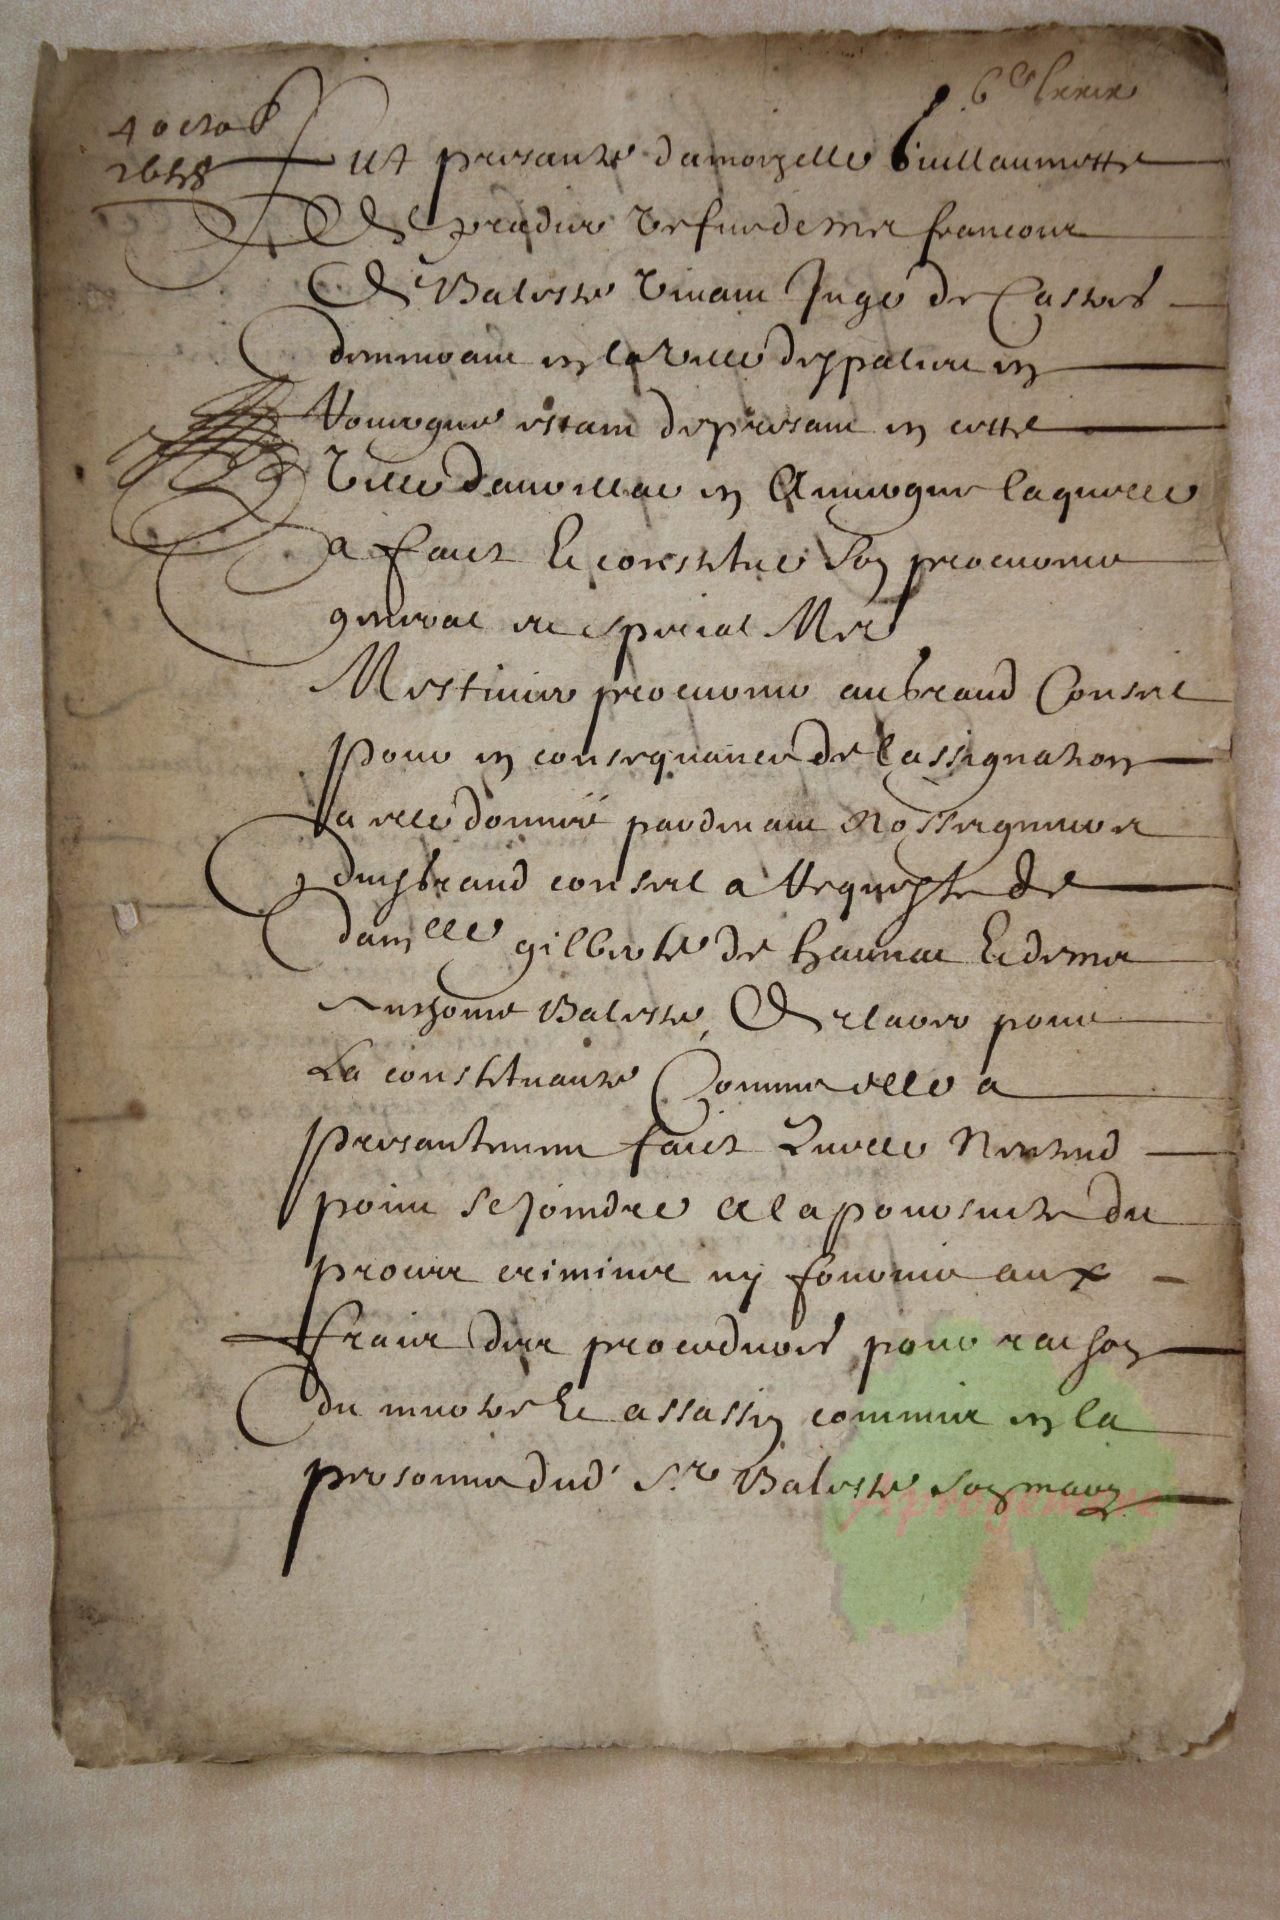 4 octob
1658
Fut presante damoyzelle Guillaumette
de pradine vefue de mre francois
de Baleste vivant Juge de Castres
demurant en la ville despalion en
Rouergue estant de presant en ceste
ville daurillac en Auuergne laquelle
a faict et constitue son procureur
general et special Mre
Mestivier procureur au grand Conseil
pour en consequance de lassignation
a elle donnée pardevant Nosseigneurs
du grand conseil a Requeste de
damlle gilberte de et de mre
Anthoine Baleste, declarer pour
La constituante Comme elle a
presantement faict Quelle Nentend
point se joindre a la poursuite du
procez criminel ny fournir aux
fraix des procedures pour raison
du murtre et assassin commis en la
personne dud Sr Baleste son mary
Aprogemere